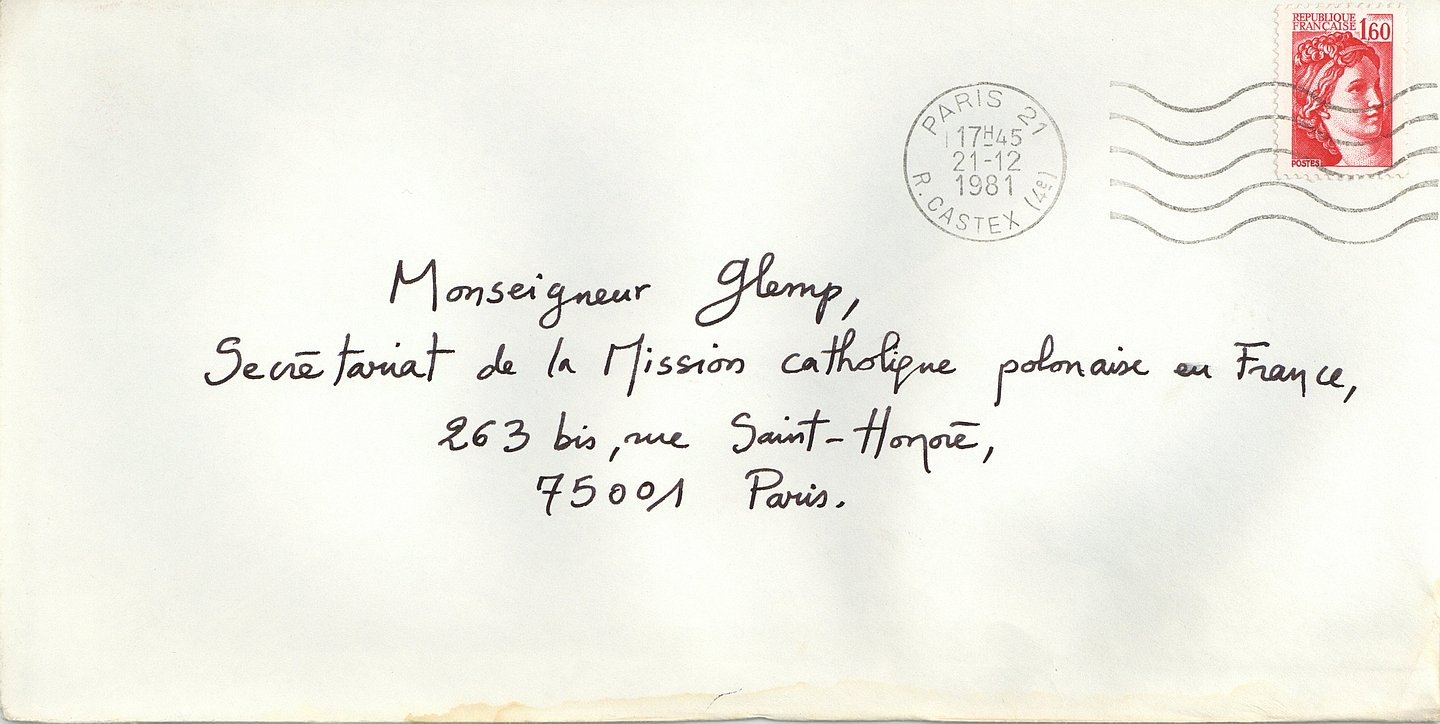 REPUBLIQUE
FRANÇAISE 1,60
POSTES
PARIS 21
17H45
21-12
1981
R. CASTEX (4e)
Monseigneur Glemp,
Secrétariat de la Mission catholique polonaise en France,
263 bis, rue Saint-Honoré,
75001 Paris.